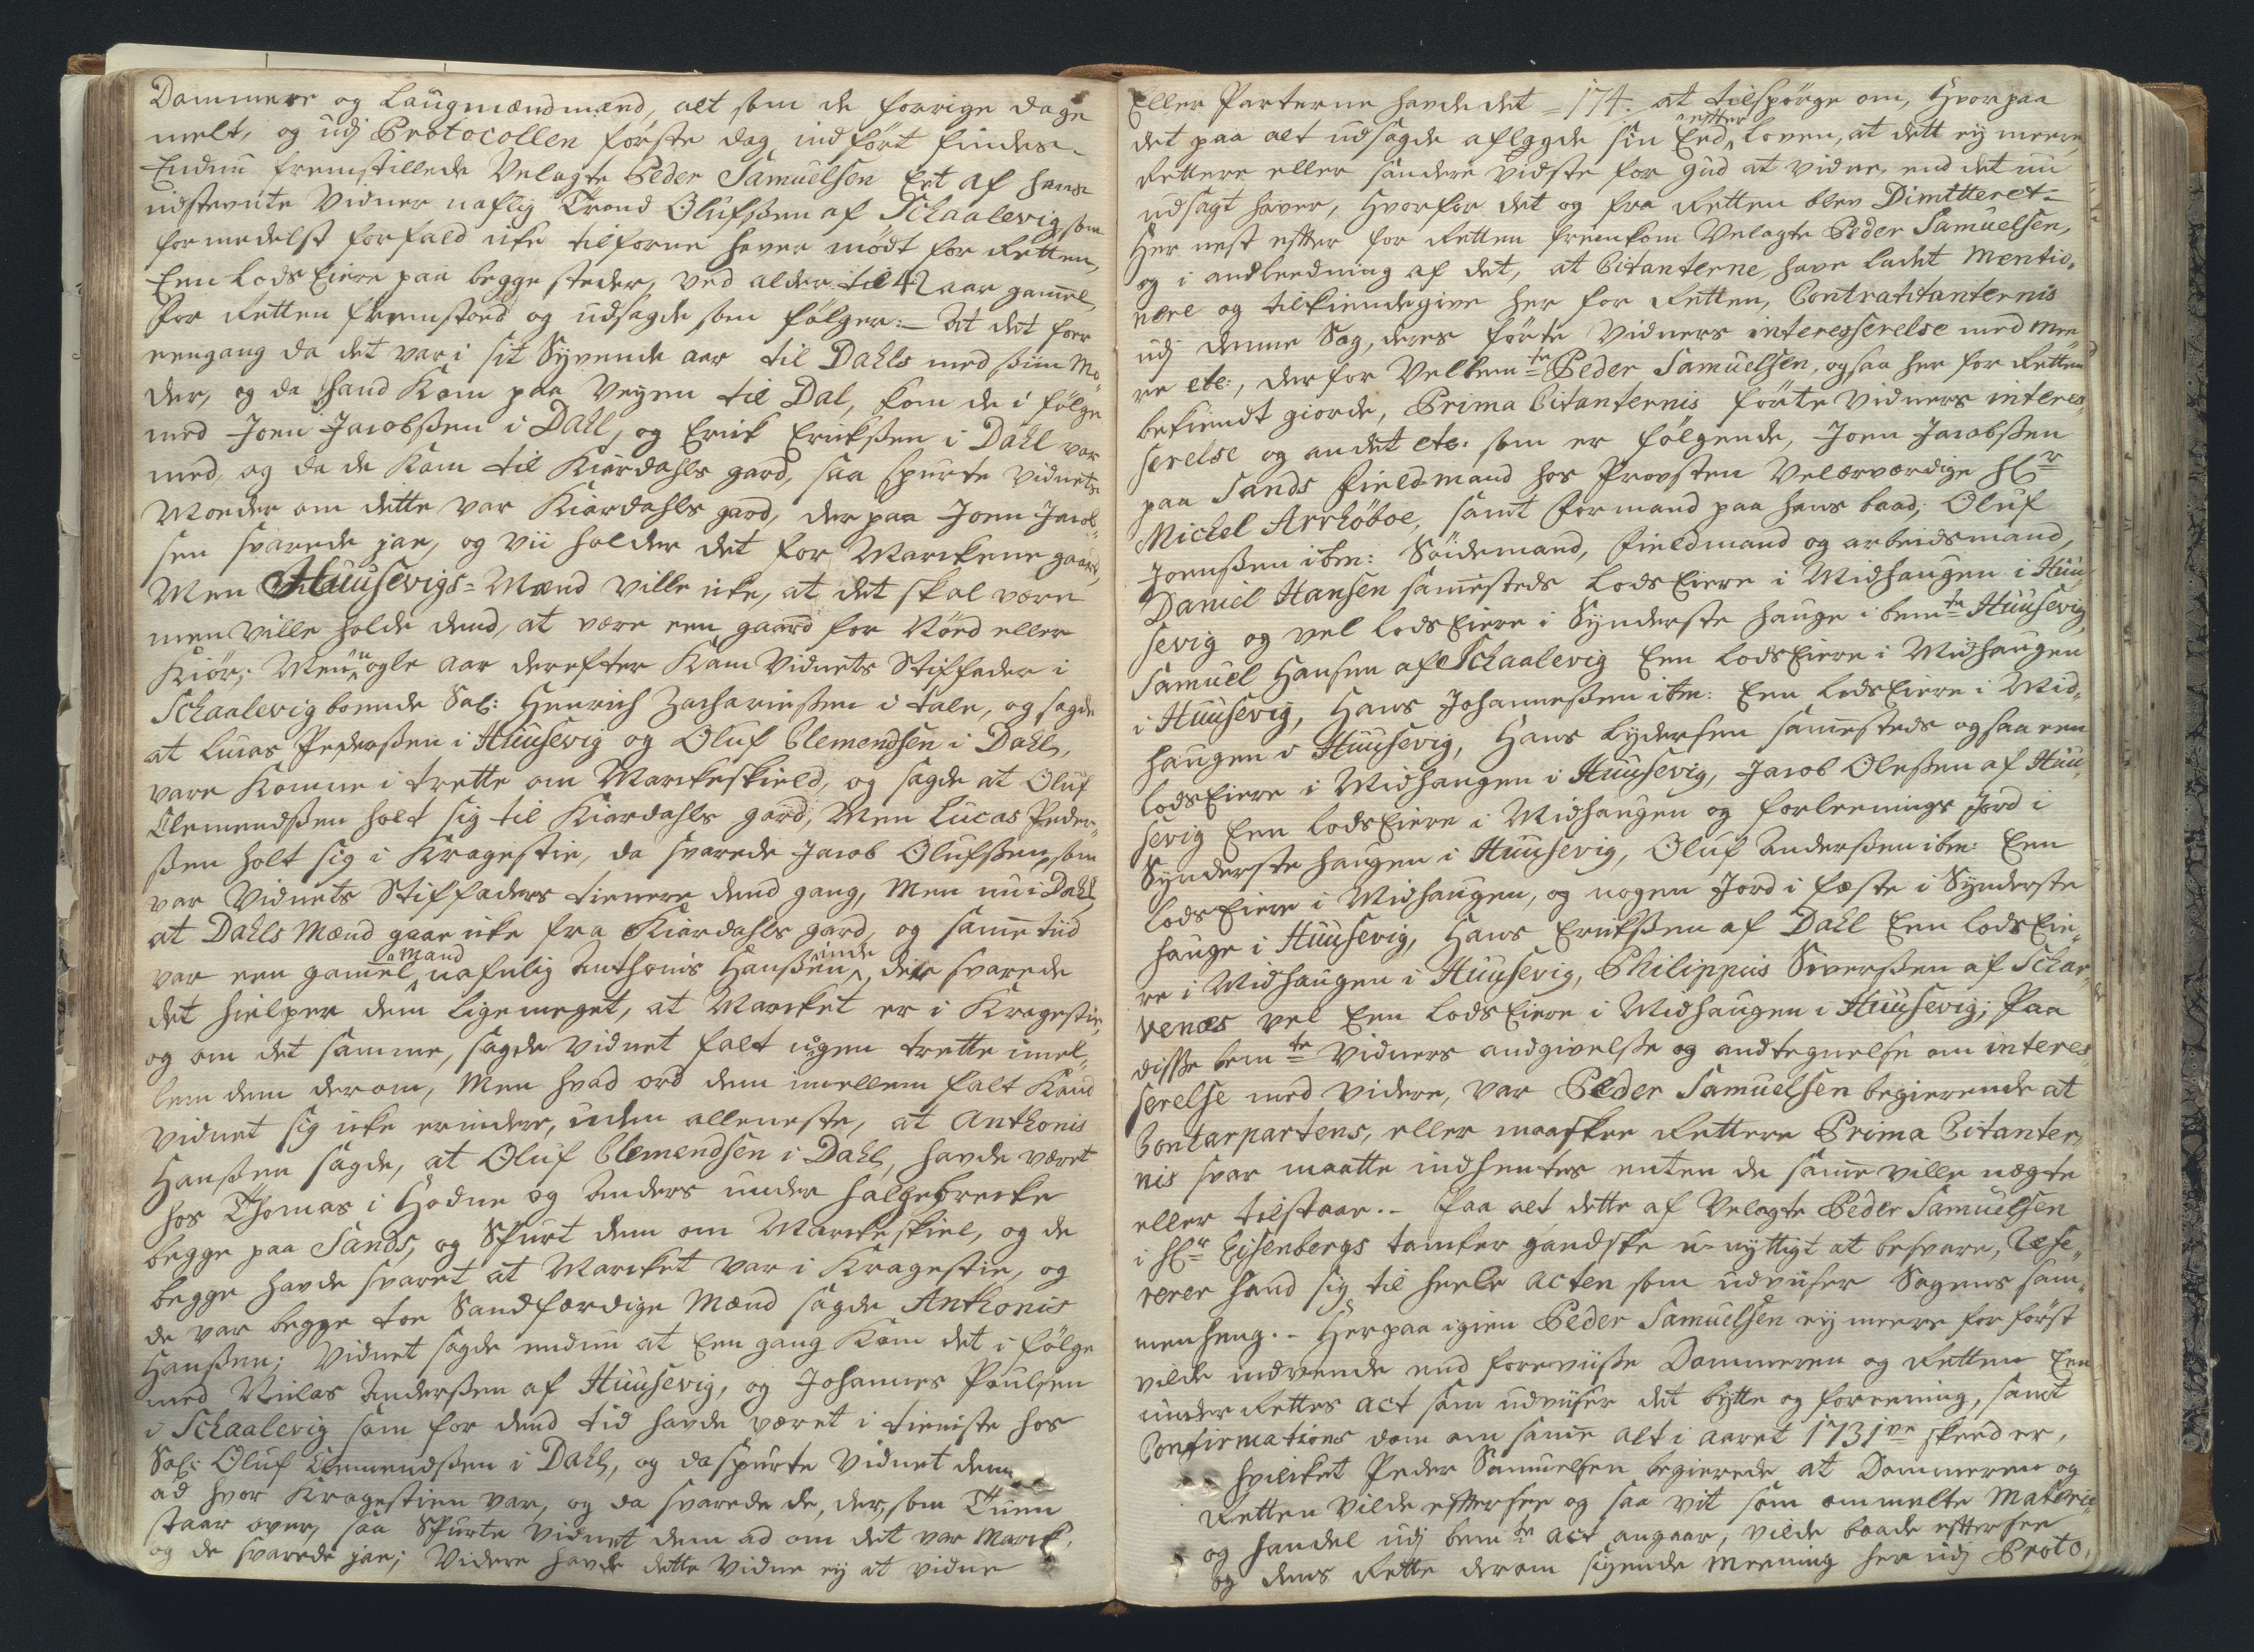 Dommere og Laugmændmænd, alt som de forrige dage
melt, og udj Protocollen første dag, indført findes.
Endnu fremstillede Velagte Peder Samuelsen Eet af hans
udstevnte Vidner nafl: Trond Olufsßen af Schaalevig, som
formedelst forfald icke tilforne haver mødt for Retten,
Een Lods Eiere paa begge steder, ved alder til 42 aar gamel,
for Retten fremstoed og udsagde som følger:- At det foer
eengang da det var i sit Syvende aar til Dahls med siin Mo„
der, og da hand kom paa Veyen til Dal, kom de i følge
med Joen Jacobßen i Dahl, og Erick Erickßen i Dahl var
med, og da de kom til Kiærdahls gard, saa spurte Vidnets
Moeder om dette var Kiærdahls gard, der paa Joen Jacob„
sen svarede jae, og vii holder det for Marckene gaard,
Men Huusevigs-Mænd ville icke, at det skal være
men ville holde dend, at være een gaard for Nöed eller
Kiör; Men nogle aar derefter kam Vidnets Stiffader i
Schaalevig boende Sal: Henrich Zachariaßen i tale, og sagde
at Lucas Pederßen i Huusevig og Oluf Clemendsen i Dahl,
vare komne i trette om Marckeskield, og sagde at Oluf
Clemendßen holt sig til Kiærdahls gard; Men Lucas Peder„
ßen holt sig i Kragestie, da svarede Jacob Olufßen, som
var Vidnets Stiffaders tienere dend gang, Men nu i Dahl,
at Dahls Mænd gaar icke fra Kiærdahls gard, og same tiid
var een gamel mand nafnlig Anthonis Hanßen inde, der svarede
det hielper dem ligemeget, at Marcket er i Kragestie,
og om det samme, sagde Vidnet falt ingen trette imel„
lem dem derom, Men hvad ord dem imellem falt kand
Vidnet sig icke erindere, uden alleneste, at Anthonis
Hanßen sagde, at Oluf Clemendsen i Dahl, havde været
hos Thomas i Hodne og Anders under Halgebrecke
begge paa Sands, og Spurt dem om Marckeskiel, og de
begge havde svaret at Marcket var i Kragestie, og
de var begge toe Sandfærdige Mænd sagde Anthonis
Hanßen; Vidnet sagde endnu at Een gang kom det i følge
med Niclas Anderßen af Huusevig, og Johannes Poulsen
i Schaalevig som for dend tid havde været i tieniste hos
Sal: Oluf Clemendßen i Dahl, og da spurte Vidnet dem
ad hvor Kragestien var, og da svarede de, der, som Tuen
staar over, saa Spurte Vidnet dem ad om det var Marck,
og de svarede jae; Videre havde dette Vidne ey at vidne
Eller Parterne havde det = 174. at tilspørge om, Hvorpaa
det paa alt udsagde aflagde sin Eed efter loven, at dett ey meere,
Rettere eller sandere vidste for gud at vidne, end det nu
udsagt haver, Hvorfor det og fra Retten blev Dimtteret.
Her nest efter for Retten fremkom Velagte Peder Samuelsen,
og i andleedning af det, at Citanterne, have ladet Mentio„
nere og tilkiendegive her for Retten, Contracitanternis
udj denne Sag, deres førte Vidners interesserelse med mee„
re etc:, derfor Velbemte Peder Samuelsen, ogsaa her for Retten
bekiendt giorde, Prima Citanternis førte Vidners interes„
serelse og andet etc: som er følgende, Joen Jacobßen
paa Sands Field-mand hos Provsten Velærværdige Hr
Michel Arrhöboe, samt Formand paa hans baad; Oluf
Joenßen ibm: Söidemand, Fieldmand og arbeidsmand,
Daniel Hansen samesteds Lods Eiere i Midhaugen i Huu„
sevig og vel Lods Eiere i Synderste hauge i bemte Huusevig
Samuel Hansen af Schaalevig Een Lods Eiere i Midhaugen
i Huusevig, Hans Johannesßen ibm: Een Lods Eiere i Mid„
haugen i Huusevig, Hans Lydersen samesteds ogsaa een
Lods Eiere i Midhaugen i Huusevig, Jacob Oleßen af Huu„
sevig Een Lods Eiere i Midhaugen og forleenings Jord i
Synderste haugen i Huusevig, Oluf Anderßen ibm: Een
Lods Eiere i Midhaugen, og nogen Jord i fæste i Synderste
hauge i Huusevig, Hans Erickßen af Dahl Een Lods Eie„
re i Midhaugen i Huusevig, Philippus Siverßen af Schar„
venæs vel Een Lods Eiere i Midhaugen i Huusevig; Paa
disße bemte Vidners andgivelse og andtegnelse om interes„
serelse med videre, var Peder Samuelsen begierende at
Contarpartens, eller maaskee Rettere Prima Citanter„
nis svar maatte indhentes enten de same ville nægte
eller tilstaae.- Paa alt dette af Velagte Peder Samuelsen
i Hr Eisenbergs tancker gandske u-nyttigt at besvare, Refe„
rerer hand sig til heele acten som udviiser Sagens sam„
menheng.- Herpaa igien Peder Samuelsen ey meere for först
vilde indvende end foreviise Dommeren og Retten Een
under Rettes act som udviiser det bytte og foreening, samt
Confirmations dom om same alt i aaret 1731ve skeed er,
hvilcket Peder Samuelsen begierede at Dommeren og
Retten vilde efftersee og saa vit som ommelte Materie
og handel udj bemte act angaar, vilde baade efftersee
og dens Rette derom sigende Meening her udj Proto„